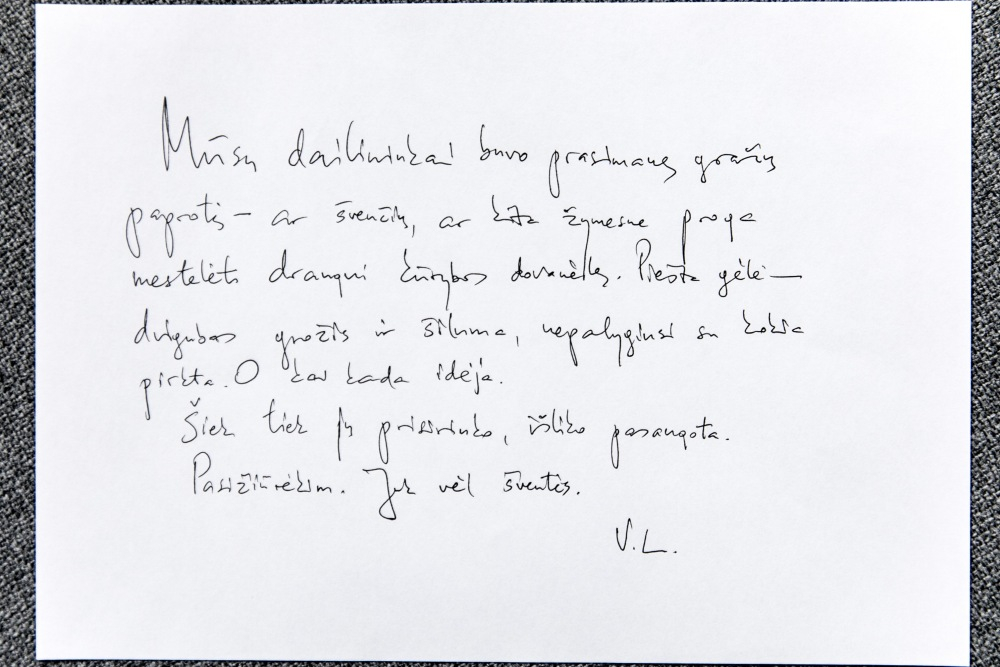 Mūsų dailininkai buvo prasimanę gražų
paprotį – ar švenčių, ar kita žymesne proga
mestelėti draugui kūrybos dovanėlę. Piešta gėlė –
dvigubas grožis ir šiluma, nepalyginsi su kokia
pirkta. O kai kada idėja.
Šiek tiek jų prisirinko, išliko pasaugota.
Pasižiūrėkim. Juk vėl šventės.
V.L.